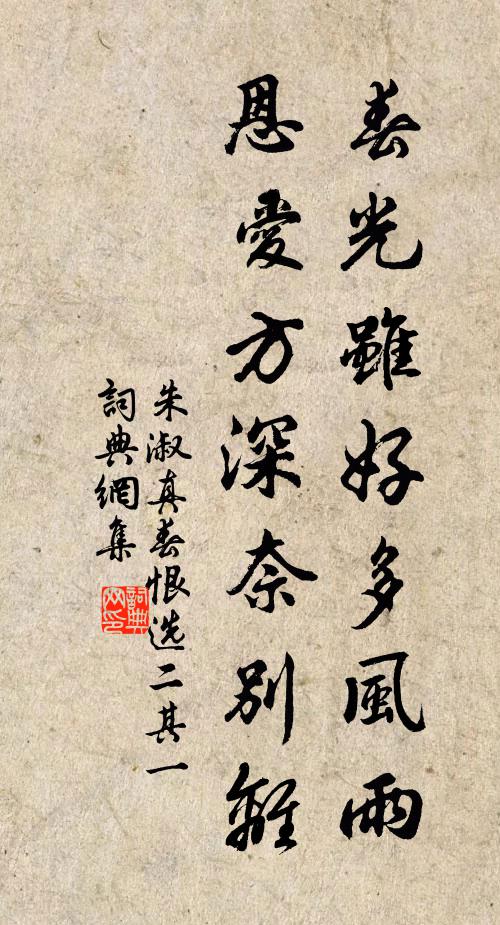 春光雖好多風雨
恩愛方深奈別離
朱淑真春恨选二其一
詞典網集
詞典
网印